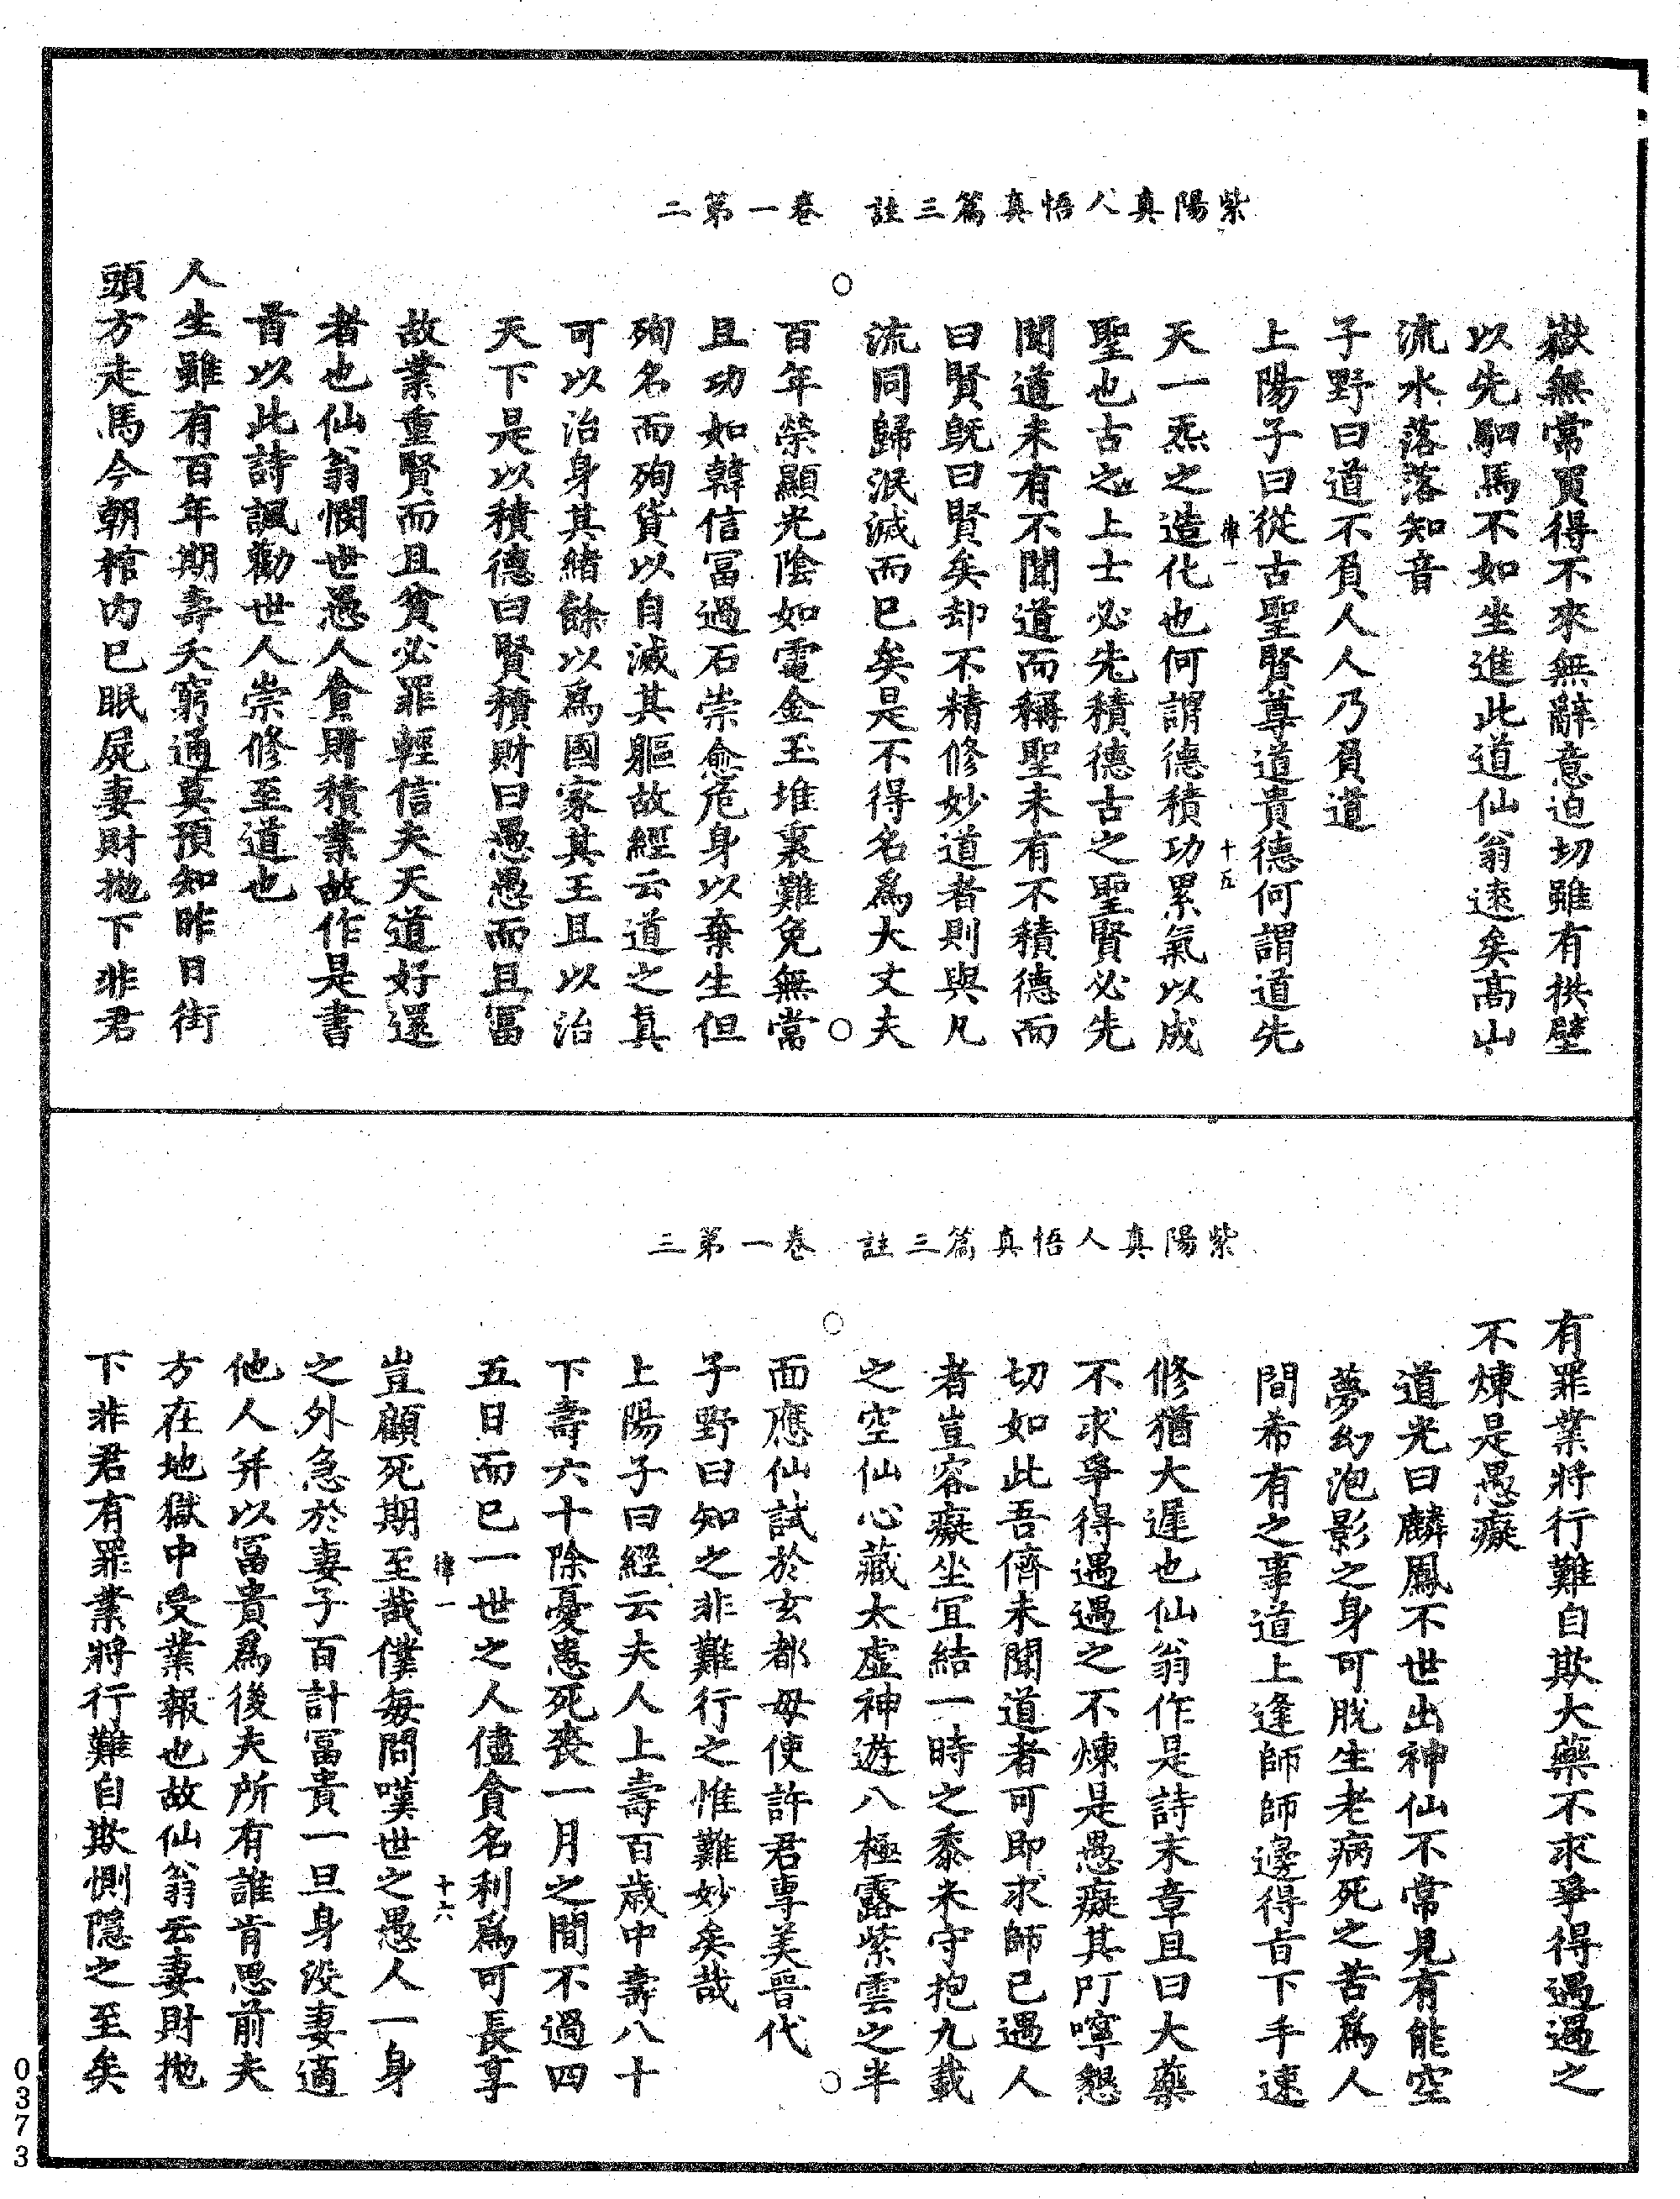 紫陽真人悟真篇三註　卷一第二
嶽無常買得不來無辭意迫切雖有拱璧
以先駟馬不如坐進此道仙翁遠矣高山
流水落落知音
子野曰道不負人人乃負道
上陽子曰從古聖賢尊道貴德何謂道先
律一　十五
天一炁之造化也何謂德積功累氣以成
聖也古之上士必先積德古之聖賢必先
聞道未有不聞道而稱聖未有不積德而
曰賢既曰賢矣却不精修妙道者則與凡
流同歸泯滅而已矣是不得名爲大丈夫
百年榮顯光陰如電金玉堆裏難免無常
且功如韓信冨過石崇愈危身以棄生但
殉名而殉貨以自滅其軀故經云道之真
可以治身其緒餘以爲國家其王且以治
天下是以積德曰賢積財曰愚愚而且冨
故業重賢而且貧必罪輕信夫天道好還
者也仙翁憫世愚人貪財積業故作是書
首以此詩諷勸世人崇修至道也
人生雖有百年期壽夭窮通莫預知昨日街
頭方走馬今朝棺内已眠屍妻財抛下非君
紫陽真人悟真篇三註　卷一第三
有罪業將行難自欺大藥不求爭得遇遇之
不煉是愚癡
道光曰麟鳳不世出神仙不常見有能空
夢幻泡影之身可脫生老病死之苦爲人
間希有之事道上逢師師邊得旨下手速
修猶大遲也仙翁作是詩末章且曰大藥
不求爭得遇遇之不煉是愚癡其叮嚀懇
切如此吾儕未聞道者可即求師已遇人
者豈容癡坐冝結一時之黍米守抱九載
之空仙心藏太虛神遊八極露紫雲之半
面應仙試於玄都毋使許君専美晉代
子野曰知之非難行之惟難妙矣哉
上陽子曰經云夫人上壽百歲中壽八十
下壽六十除憂患死喪一月之間不過四
五日而已一世之人儘貪名利爲可長享
律一　十六
豈顧死期至哉僕每問嘆世之愚人一身
之外急於妻子百計冨貴一旦身没妻適
他人并以冨貴爲後夫所有誰肯思前夫
方在地獄中受業報也故仙翁云妻財抛
下非君有罪業將行難自欺惻隱之至矣
0373